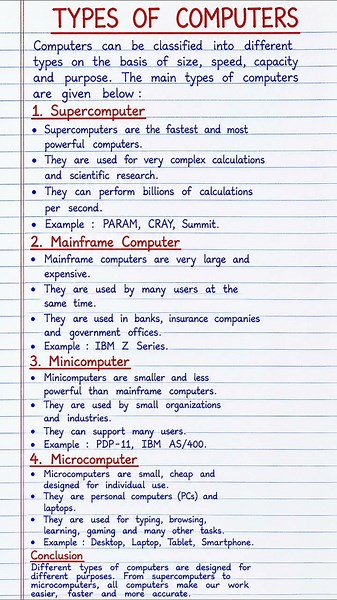 TYPES OF COMPUTERS
Computers can be classified into different
types on the basis of size, speed, capacity
and purpose. The main types of computers
are given below :
1. Supercomputer
• Supercomputers are the fastest and most
powerful computers.
• They are used for very complex calculations
and scientific research.
• They can perform billions of calculations
per second.
• Example : PARAM, CRAY, Summit.
2. Mainframe Computer
• Mainframe computers are very large and
expensive.
• They are used by many users at the
same time.
• They are used in banks, insurance companies
and government offices.
• Example : IBM Z Series.
3. Minicomputer
• Minicomputers are smaller and less
powerful than mainframe computers.
• They are used by small organizations
and industries.
• They can support many users.
• Example : PDP-11, IBM AS/400.
4. Microcomputer
• Microcomputers are small, cheap and
designed for individual use.
• They are personal computers (PCs) and
laptops.
• They are used for typing, browsing,
learning, gaming and many other tasks.
• Example : Desktop, Laptop, Tablet, Smartphone.
Conclusion
Different types of computers are designed for
different purposes. From supercomputers to
microcomputers, all computers make our work
easier, faster and more accurate.